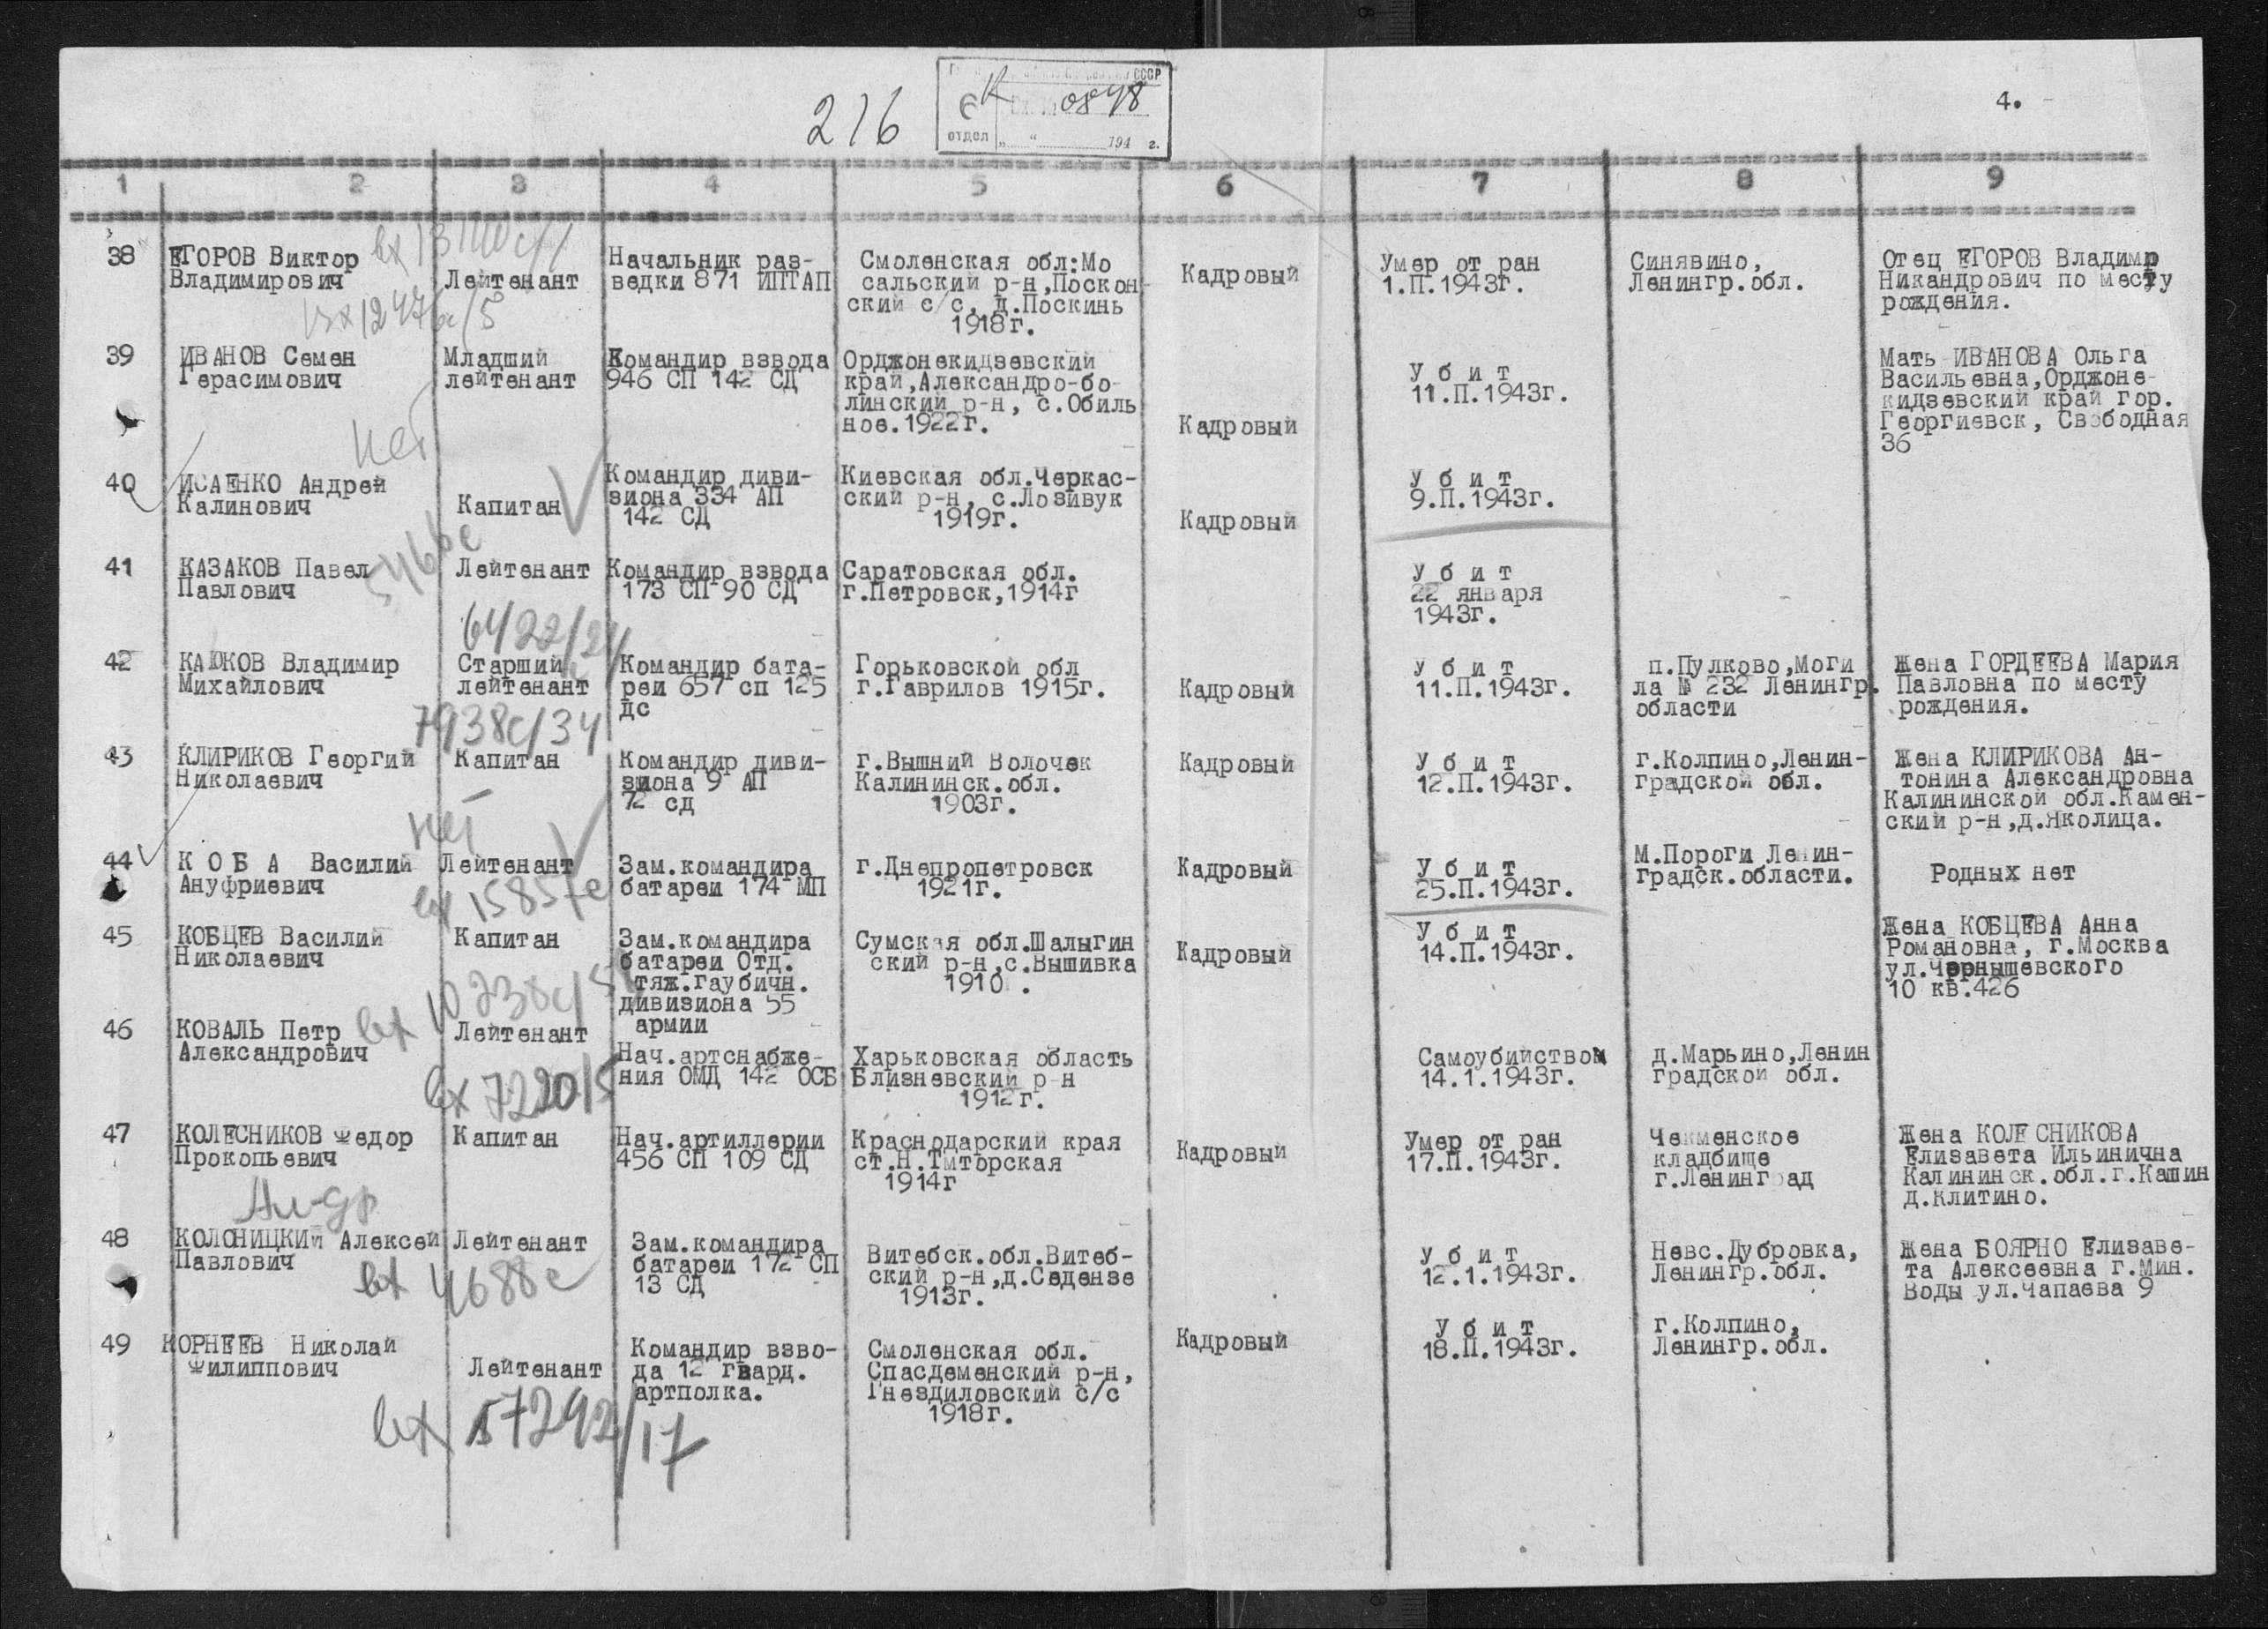 216
СССР
6
К
0898
отдел
194 г.
4.
1 2 3 4 5 6 7 8 9
38
ЕГОРОВ Виктор
Владимирович
Лейтенант
Начальник раз-
ведки 871 ИПТАП
Смоленская обл:Мо
сальский р-н,Поскон-
ский с/с, д.Поскинь
1918г.
Кадровый
Умер от ран
1.П.1943г.
Синявино,
Ленингр.обл.
Отец ЕГОРОВ Владимир
Никандрович по месту
рождения.
39
ИВАНОВ Семен
Герасимович
Младший
лейтенант
Командир взвода
946 СП 142 СД
Орджонекидзевский
край,Александро-бо-
линский р-н, с.Обиль
ное.1922г.
Кадровый
У б и т
11.П.1943г.
Мать ИВАНОВА Ольга
Васильевна,Орджоне-
кидзевский край гор.
Георгиевск, Свободная
36
нет
40
ИСАЕНКО Андрей
Калинович
Капитан
Командир диви-
зиона 334 АП
142 СД
Киевская обл.Черкас-
ский р-н, с.Лозивук
1919г.
Кадровый
У б и т
9.П.1943г.
5466с
41
КАЗАКОВ Павел
Павлович
Лейтенант
Командир взвода
173 СП 90 СД
Саратовская обл.
г.Петровск,1914г
У б и т
22 января
1943г.
6422/24
42
КАЮКОВ Владимир
Михайлович
Старший
лейтенант
Командир бата-
реи 657 сп 125
дс
Горьковской обл
г.Гаврилов 1915г.
Кадровый
У б и т
11.П.1943г.
п.Пулково,Моги
ла № 232 Ленингр.
области
Жена ГОРДЕЕВА Мария
Павловна по месту
рождения.
7938с/34
43
КЛИРИКОВ Георгий
Николаевич
Капитан
Командир диви-
зиона 9 АП
72 сд
г.Вышний Волочек
Калининск.обл.
1903г.
Кадровый
У б и т
12.П.1943г.
г.Колпино,Ленин-
градской обл.
Жена КЛИРИКОВА Ан-
тонина Александровна
Калининской обл.Камен-
ский р-н,д.Яколица.
нет
44
К О Б А Василий
Ануфриевич
Лейтенант
Зам.командира
батареи 174 МП
г.Днепропетровск
1921г.
Кадровый
У б и т
25.П.1943г.
М.Пороги Ленин-
градск.области.
Родных нет
вх 15857с
45
КОБЦЕВ Василий
Николаевич
Капитан
Зам.командира
батареи Отд.
тяж.гаубичн.
дивизиона 55
армии
Сумская обл.Шалыгин
ский р-н,с.Вышивка
1910 .
Кадровый
У б и т
14.П.1943г.
Жена КОБЦЕВА Анна
Романовна, г.Москва
ул.Чернышевского
10 кв.426
46
КОВАЛЬ Петр
Александрович
Лейтенант
Нач.артснабже-
ния ОМД 142 ОСБ
Харьковская область
Близневский р-н
1912г.
Самоубийством
14.1.1943г.
д.Марьино,Ленин
градской обл.
вх 7220/5
47
КОЛЕСНИКОВ Федор
Прокопьевич
Капитан
Нач.артиллерии
456 СП 109 СД
Краснодарский края
ст.Н.Тмторская
1914г
Кадровый
Умер от ран
17.П.1943г.
Чекменское
кладбище
г.Ленинград
Жена КОЛЕСНИКОВА
Елизавета Ильинична
Калининск.обл.г.Кашин
д.Клитино.
48
КОЛОНИЦКИЙ Алексей
Павлович
Лейтенант
Зам.командира
батареи 172 СП
13 СД
Витебск.обл.Витеб-
ский р-н,д.Седензе
1913г.
У б и т
12.1.1943г.
Невс.Дубровка,
Ленингр.обл.
Жена БОЯРНО Елизаве-
та Алексеевна г.Мин.
Воды ул.Чапаева 9
вх 4688с
49
КОРНЕЕВ Николай
Филиппович
Лейтенант
Командир взво-
да 12 гвард.
артполка.
Смоленская обл.
Спасдеменский р-н,
Гнездиловский с/с
1918г.
Кадровый
У б и т
18.П.1943г.
г.Колпино,
Ленингр.обл.
вх 57292/17